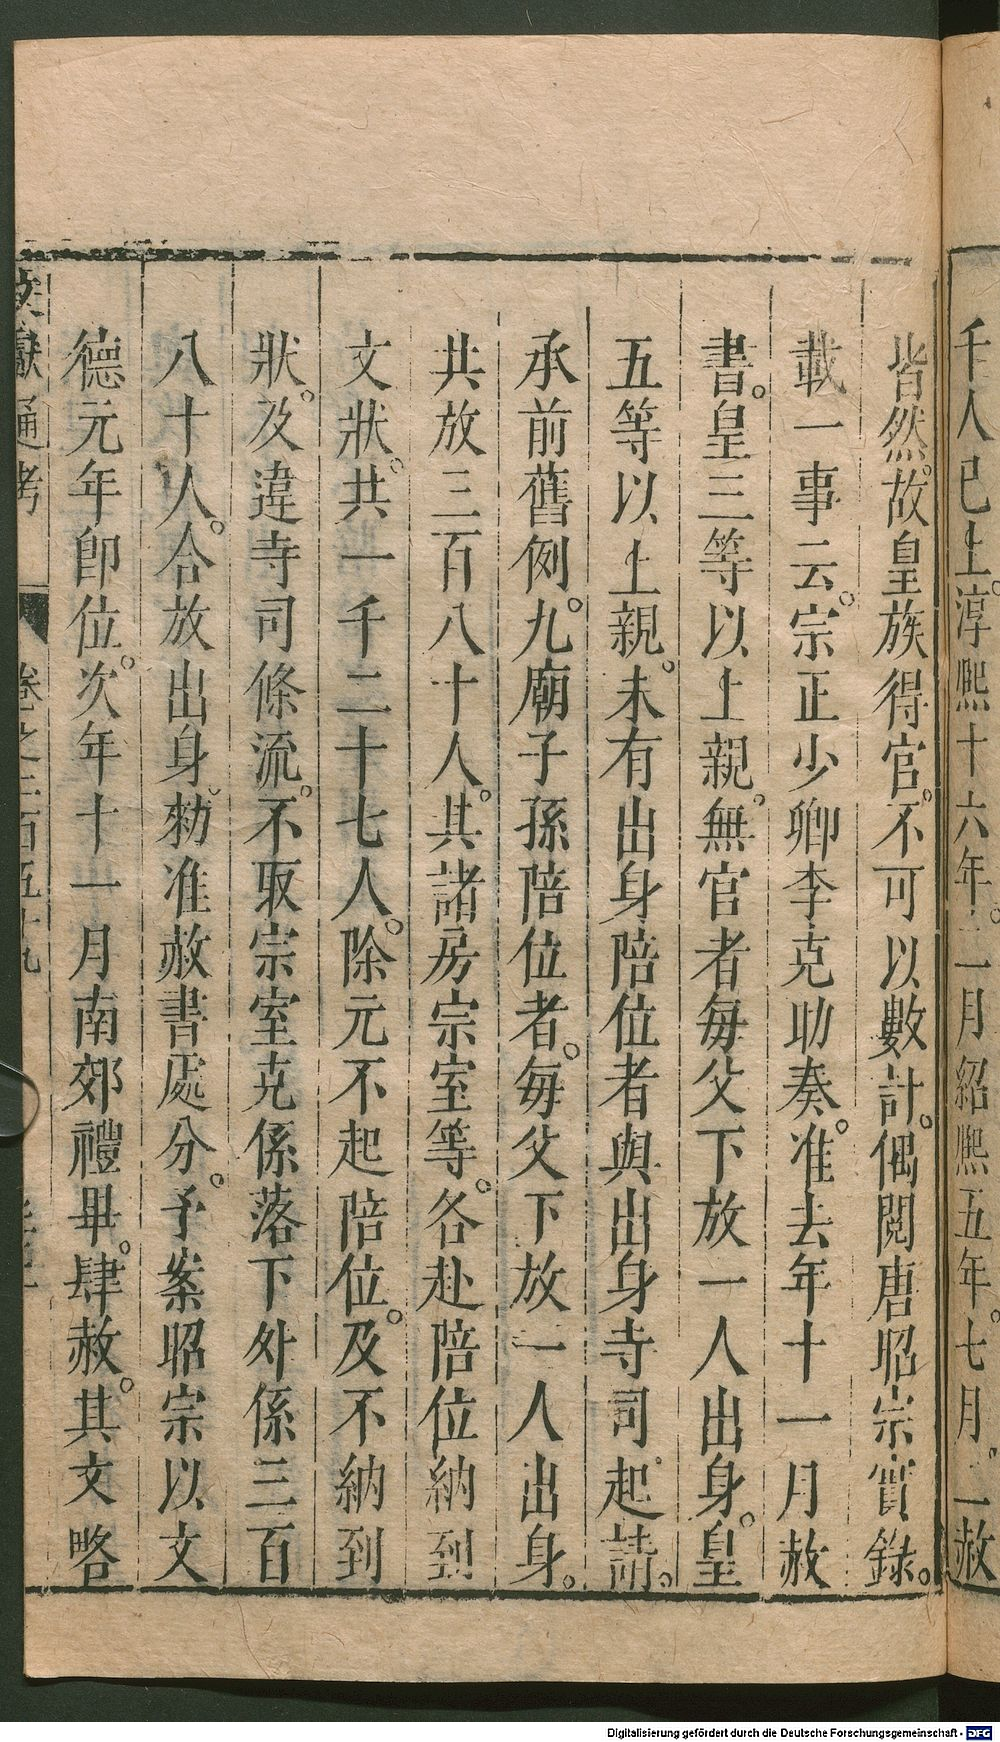 千人已上。淳熙十六年。二月紹熙五年。七月。一赦
皆然。故皇族得官。不可以數計。偶閱唐昭宗實錄。
載一事云。宗正少卿李克助奏。准去年十一月赦
書。皇三等以上親。無官者每父下放一人出身。皇
五等以上親。未有出身陪位者與出身寺司。起請。
承前舊例。九廟子孫陪位者。每父下放一人出身。
共放三百八十人。其諸房宗室等。各赴陪位納到
文狀。共一千二十七人。除元不起陪位。及不納到
狀。及違寺司條流。不取宗室充係落下外係三百
八十人。合放出身。勑准赦書處分。予案昭宗以文
德元年卽位。次年十一月南郊禮畢。肆赦。其文略
文獻通考
卷之二百五十九
Digitalisierung gefördert durch die Deutsche Forschungsgemeinschaft - DFG